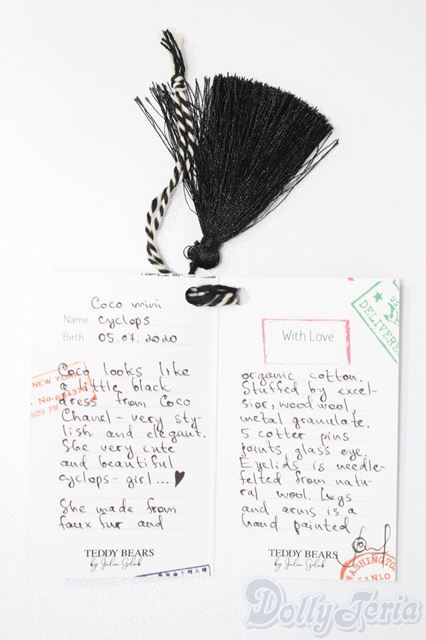 Coco mini
Name cyclops
Birth 05.07.2020
Coco looks like
a little black
dress from Coco
Chanel - very sty-
lish and elegant.
She very cute
and beautiful
cyclops-girl...
She made from
faux fur and
TEDDY BEARS
by Julia Glik
NEW YORK
With Love
DELIVERED
organic cotton.
Stuffed by excel-
sior, wood wool,
metal granulate.
5 cotter pins
joints glass eye.
Eyelids is needle-
felted from natu-
ral wool. Legs
and arms is a
hand painted
TEDDY BEARS
by Julia Glik
WASHINGTON
DollyTeria